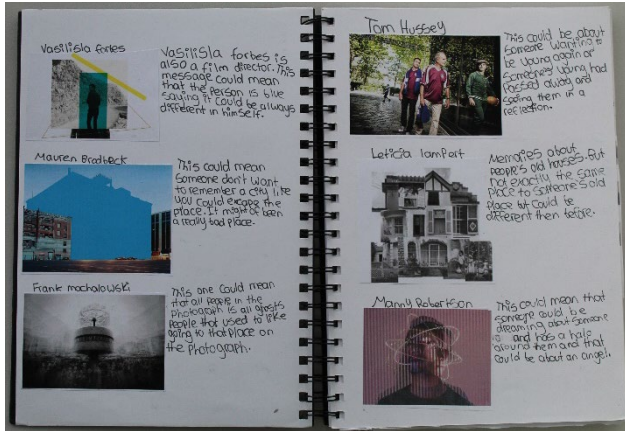 Vasilisla forbes
Vasilisla forbes is
also a film director. This
message could mean
that the person is blue
saying it could be always
different in himself.
Mauren Brodbeck
This could mean
someone don't want
to remember a city like
you could escape the
place. It might of been
a really bad place.
Frank machalowski
This one could mean
that all people in the
Photograph is all ghosts
people that used to like
going to that place on
the photograph.
Tom Hussey
This could be about
someone wanting to
be young again or
someone young had
passed away and
seeing them in a
reflection.
Leticia lampert
Memories about
people's old houses. But
not exactly the same
place to someone's old
place but could be
different then before.
Manny Robertson
This could mean that
someone could be
dreaming about someone
and has a half
around them and that
could be about an angel.